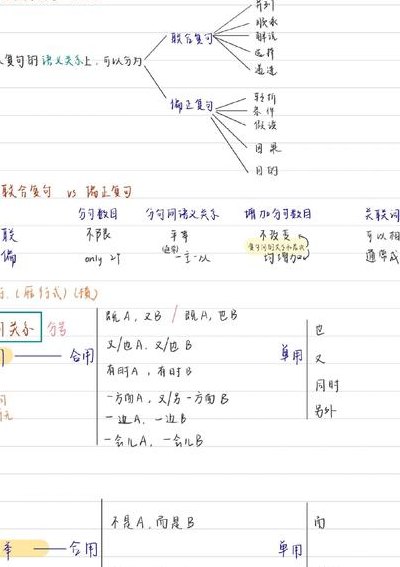 并列
顺承
联合复句 解说
选择
复句的语义关系上，可以分为
递进
偏正复句 转折
条件
假设
因果
目的
联合复句 vs 偏正复句
分句数目 分句间语义关系 增加分句数目 关联词
联 不限 平等 不改变 可以
偏 only 2个 一主一从 通常
关系 分号
既A，又B / 既A，也B
也
合用 又/也A，又/也B 单用
又
有时A，有时B
同时
一方面A，又/另一方面B
另外
一边A，一边B
一会儿A，一会儿B
不是A，而是B 而
合用 单用